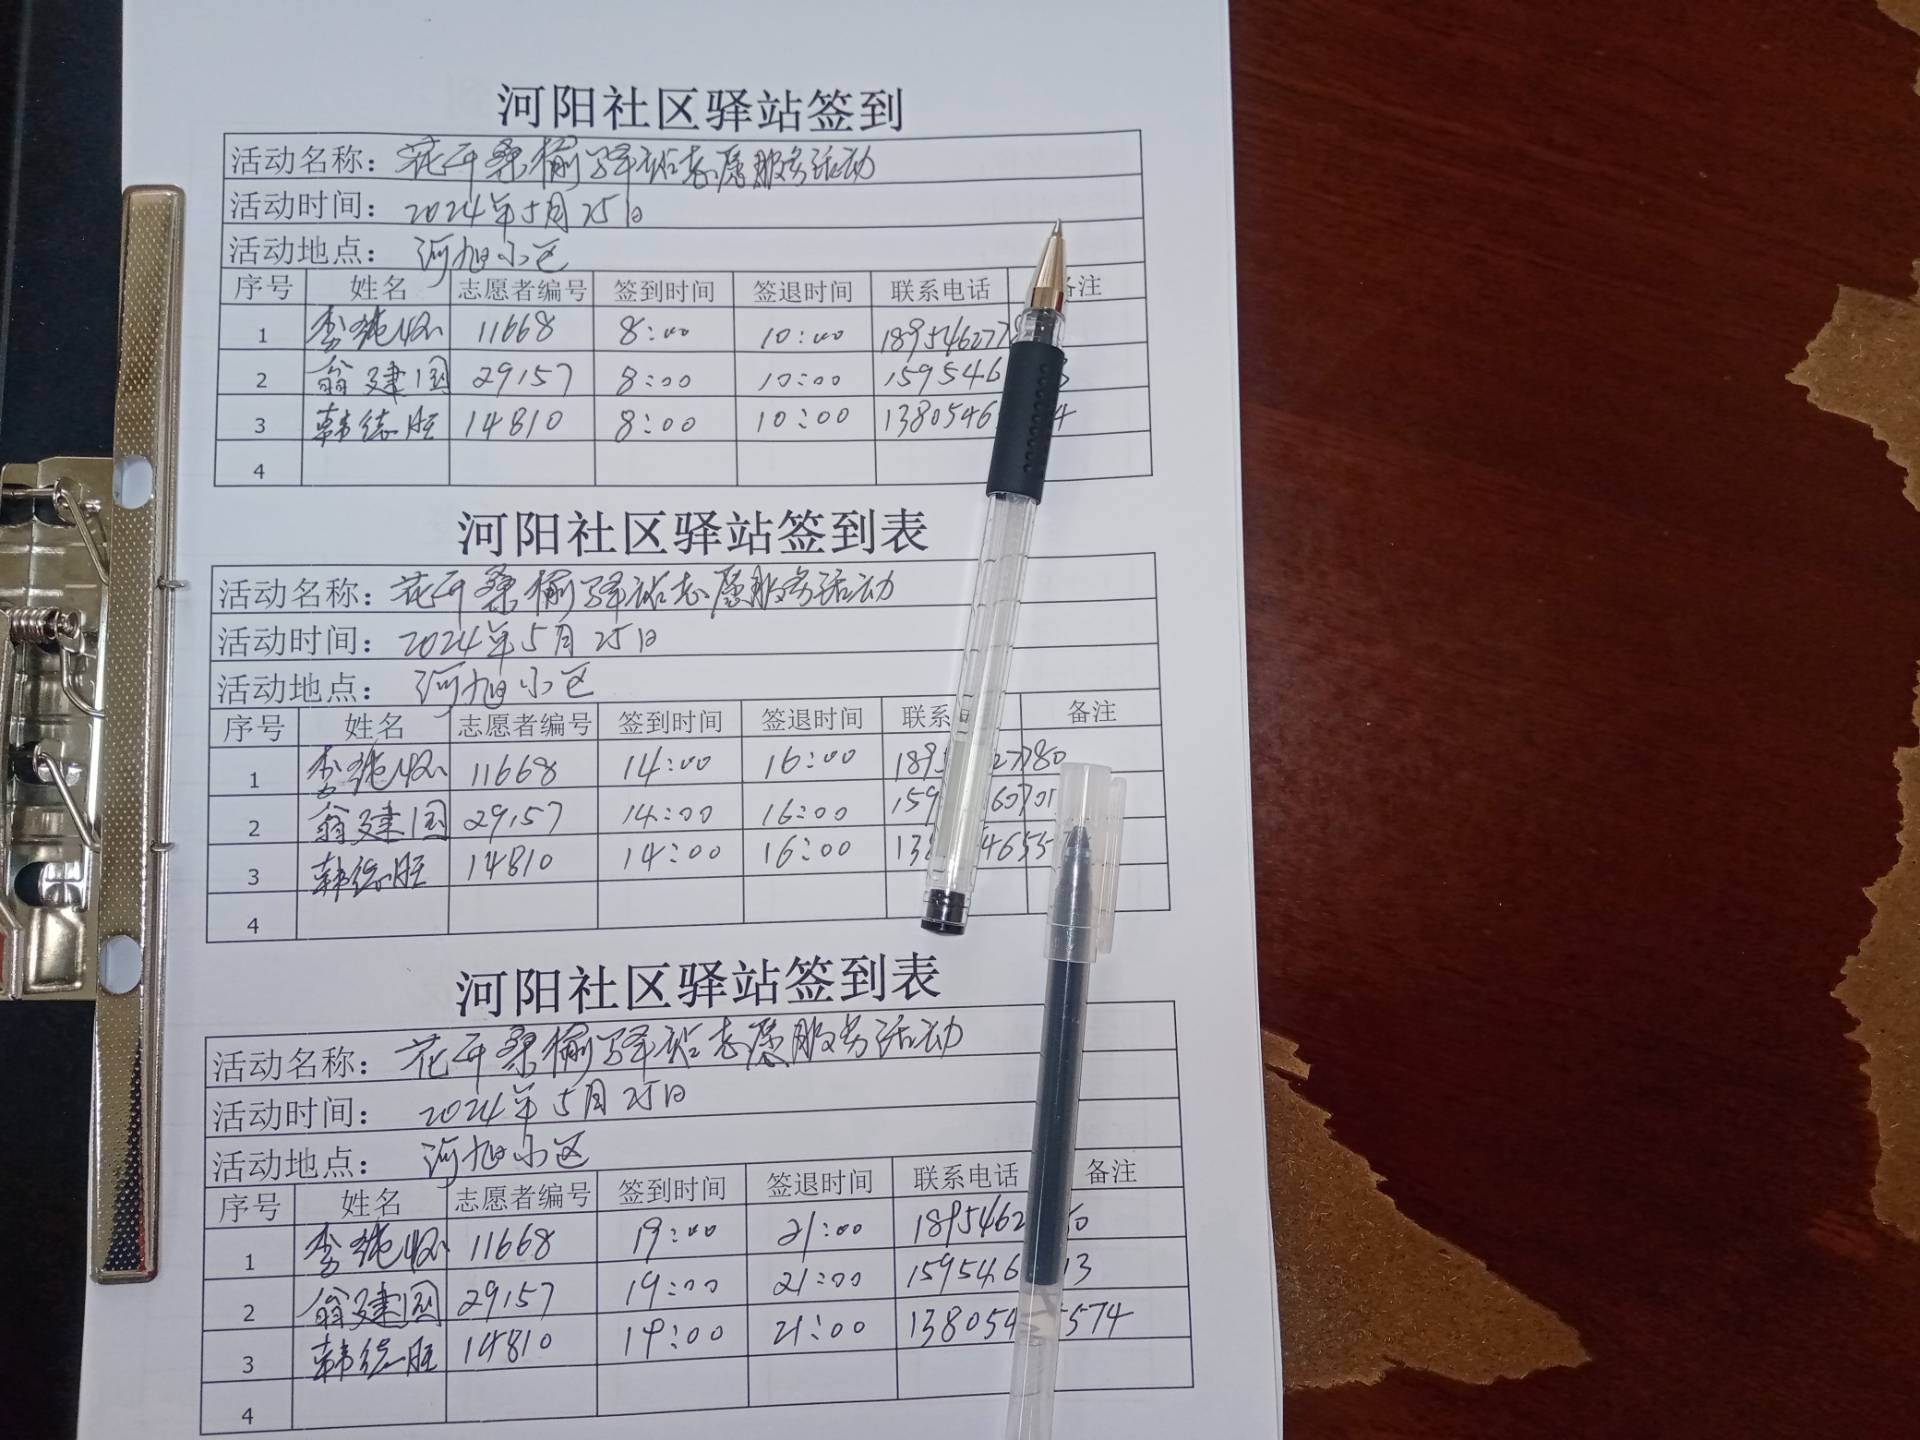 河阳社区驿站签到
活动名称：花开桑榆驿站志愿服务活动
活动时间：2024年5月25日
活动地点：河旭小区
序号 姓名 志愿者编号 签到时间 签退时间 联系电话 备注
1 李 11668 8:00 10:00 189546277
2 翁建国 29157 8:00 10:00 159546 3
3 韩德胜 14810 8:00 10:00 1380546 4
4
河阳社区驿站签到表
活动名称：花开桑榆驿站志愿服务活动
活动时间：2024年5月25日
活动地点：河旭小区
序号 姓名 志愿者编号 签到时间 签退时间 联系 备注
1 李 11668 14:00 16:00 189 27780
2 翁建国 29157 14:00 16:00 159 60701
3 韩德胜 14810 14:00 16:00 13 4655
4
河阳社区驿站签到表
活动名称：花开桑榆驿站志愿服务活动
活动时间：2024年5月25日
活动地点：河旭小区
序号 姓名 志愿者编号 签到时间 签退时间 联系电话 备注
1 李 11668 19:00 21:00 1895462 0
2 翁建国 29157 19:00 21:00 159546 13
3 韩德胜 14810 19:00 21:00 138054 5574
4